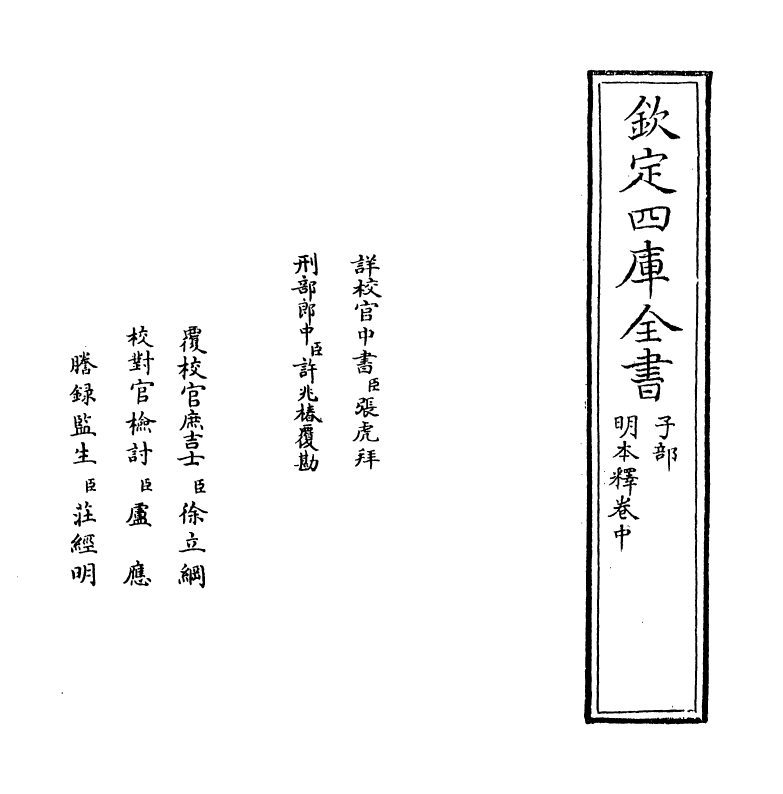 欽定四庫全書
子部
明本釋卷中
詳校官中書臣張虎拜
刑部郎中臣許兆椿覆勘
覆校官庶吉士臣徐立綱
校對官檢討臣盧應
謄錄監生臣莊經明